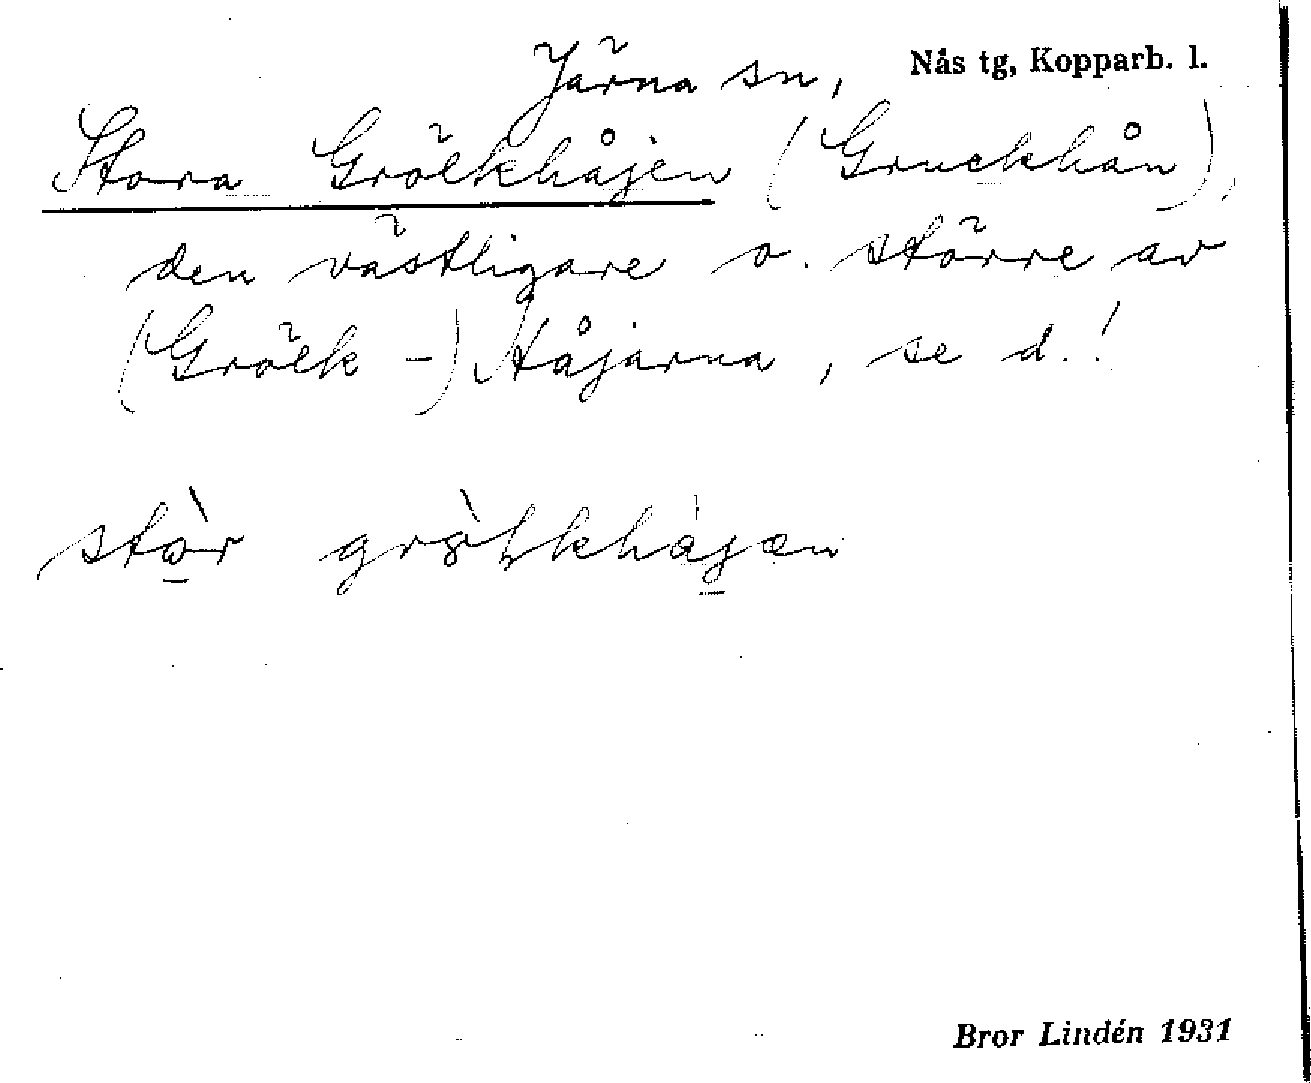 Järna sn, Nås tg, Kopparb. l.
Stora Grölkhåjen (Gruckhån),
den västligare o. större av
(Grölk-) Håjarna, se d.!
Bror Lindén 1931